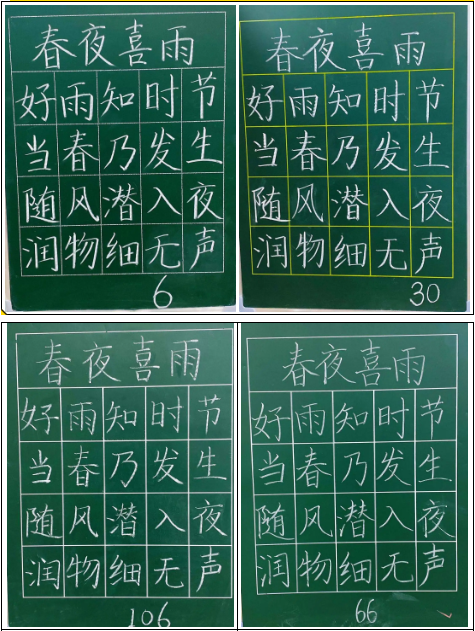 春夜喜雨
好雨知时节
当春乃发生
随风潜入夜
润物细无声
6
春夜喜雨
好雨知时节
当春乃发生
随风潜入夜
润物细无声
30
春夜喜雨
好雨知时节
当春乃发生
随风潜入夜
润物细无声
106
春夜喜雨
好雨知时节
当春乃发生
随风潜入夜
润物细无声
66